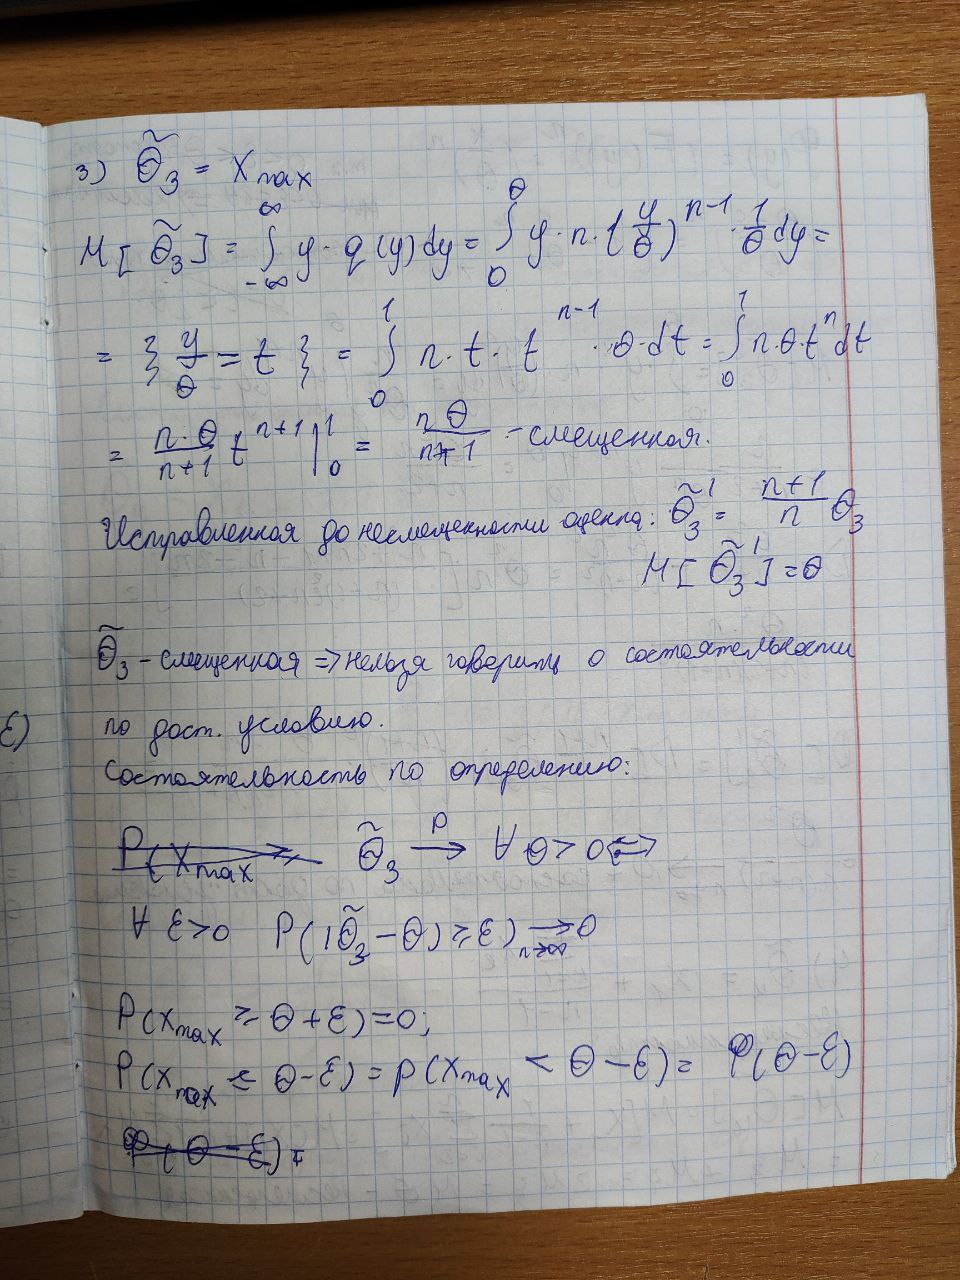 3) Θ̃₃ = x_max
M[Θ̃₃] = ∫_{-∞}^{∞} y · q(y)dy = ∫_0^θ y · n · (y/θ)^{n-1} · 1/θ dy =
= } y/θ = t } = ∫_0^1 n · t · t^{n-1} · θ · dt = ∫_0^1 n·θ·t^n dt
= n·θ/(n+1) t^{n+1} |_0^1 = nθ/(n+1) - смещенная.
Исправленная до несмещенности оценка: Θ̃₃' = (n+1)/n Θ₃
M[Θ̃₃'] = θ
Θ̃₃ - смещенная => нельзя говорить о состоятельности
ε)
по дост. условию.
Состоятельность по определению:
P(x_max Θ̃₃ →^P ∀ θ>0 <=>
∀ ε>0 P(|Θ̃₃ - θ) ≥ ε) →_{n→∞} 0
P(x_max ≥ θ+ε) = 0;
P(x_max ≤ θ-ε) = P(x_max < θ-ε) = φ(θ-ε)
φ(θ-ε) =